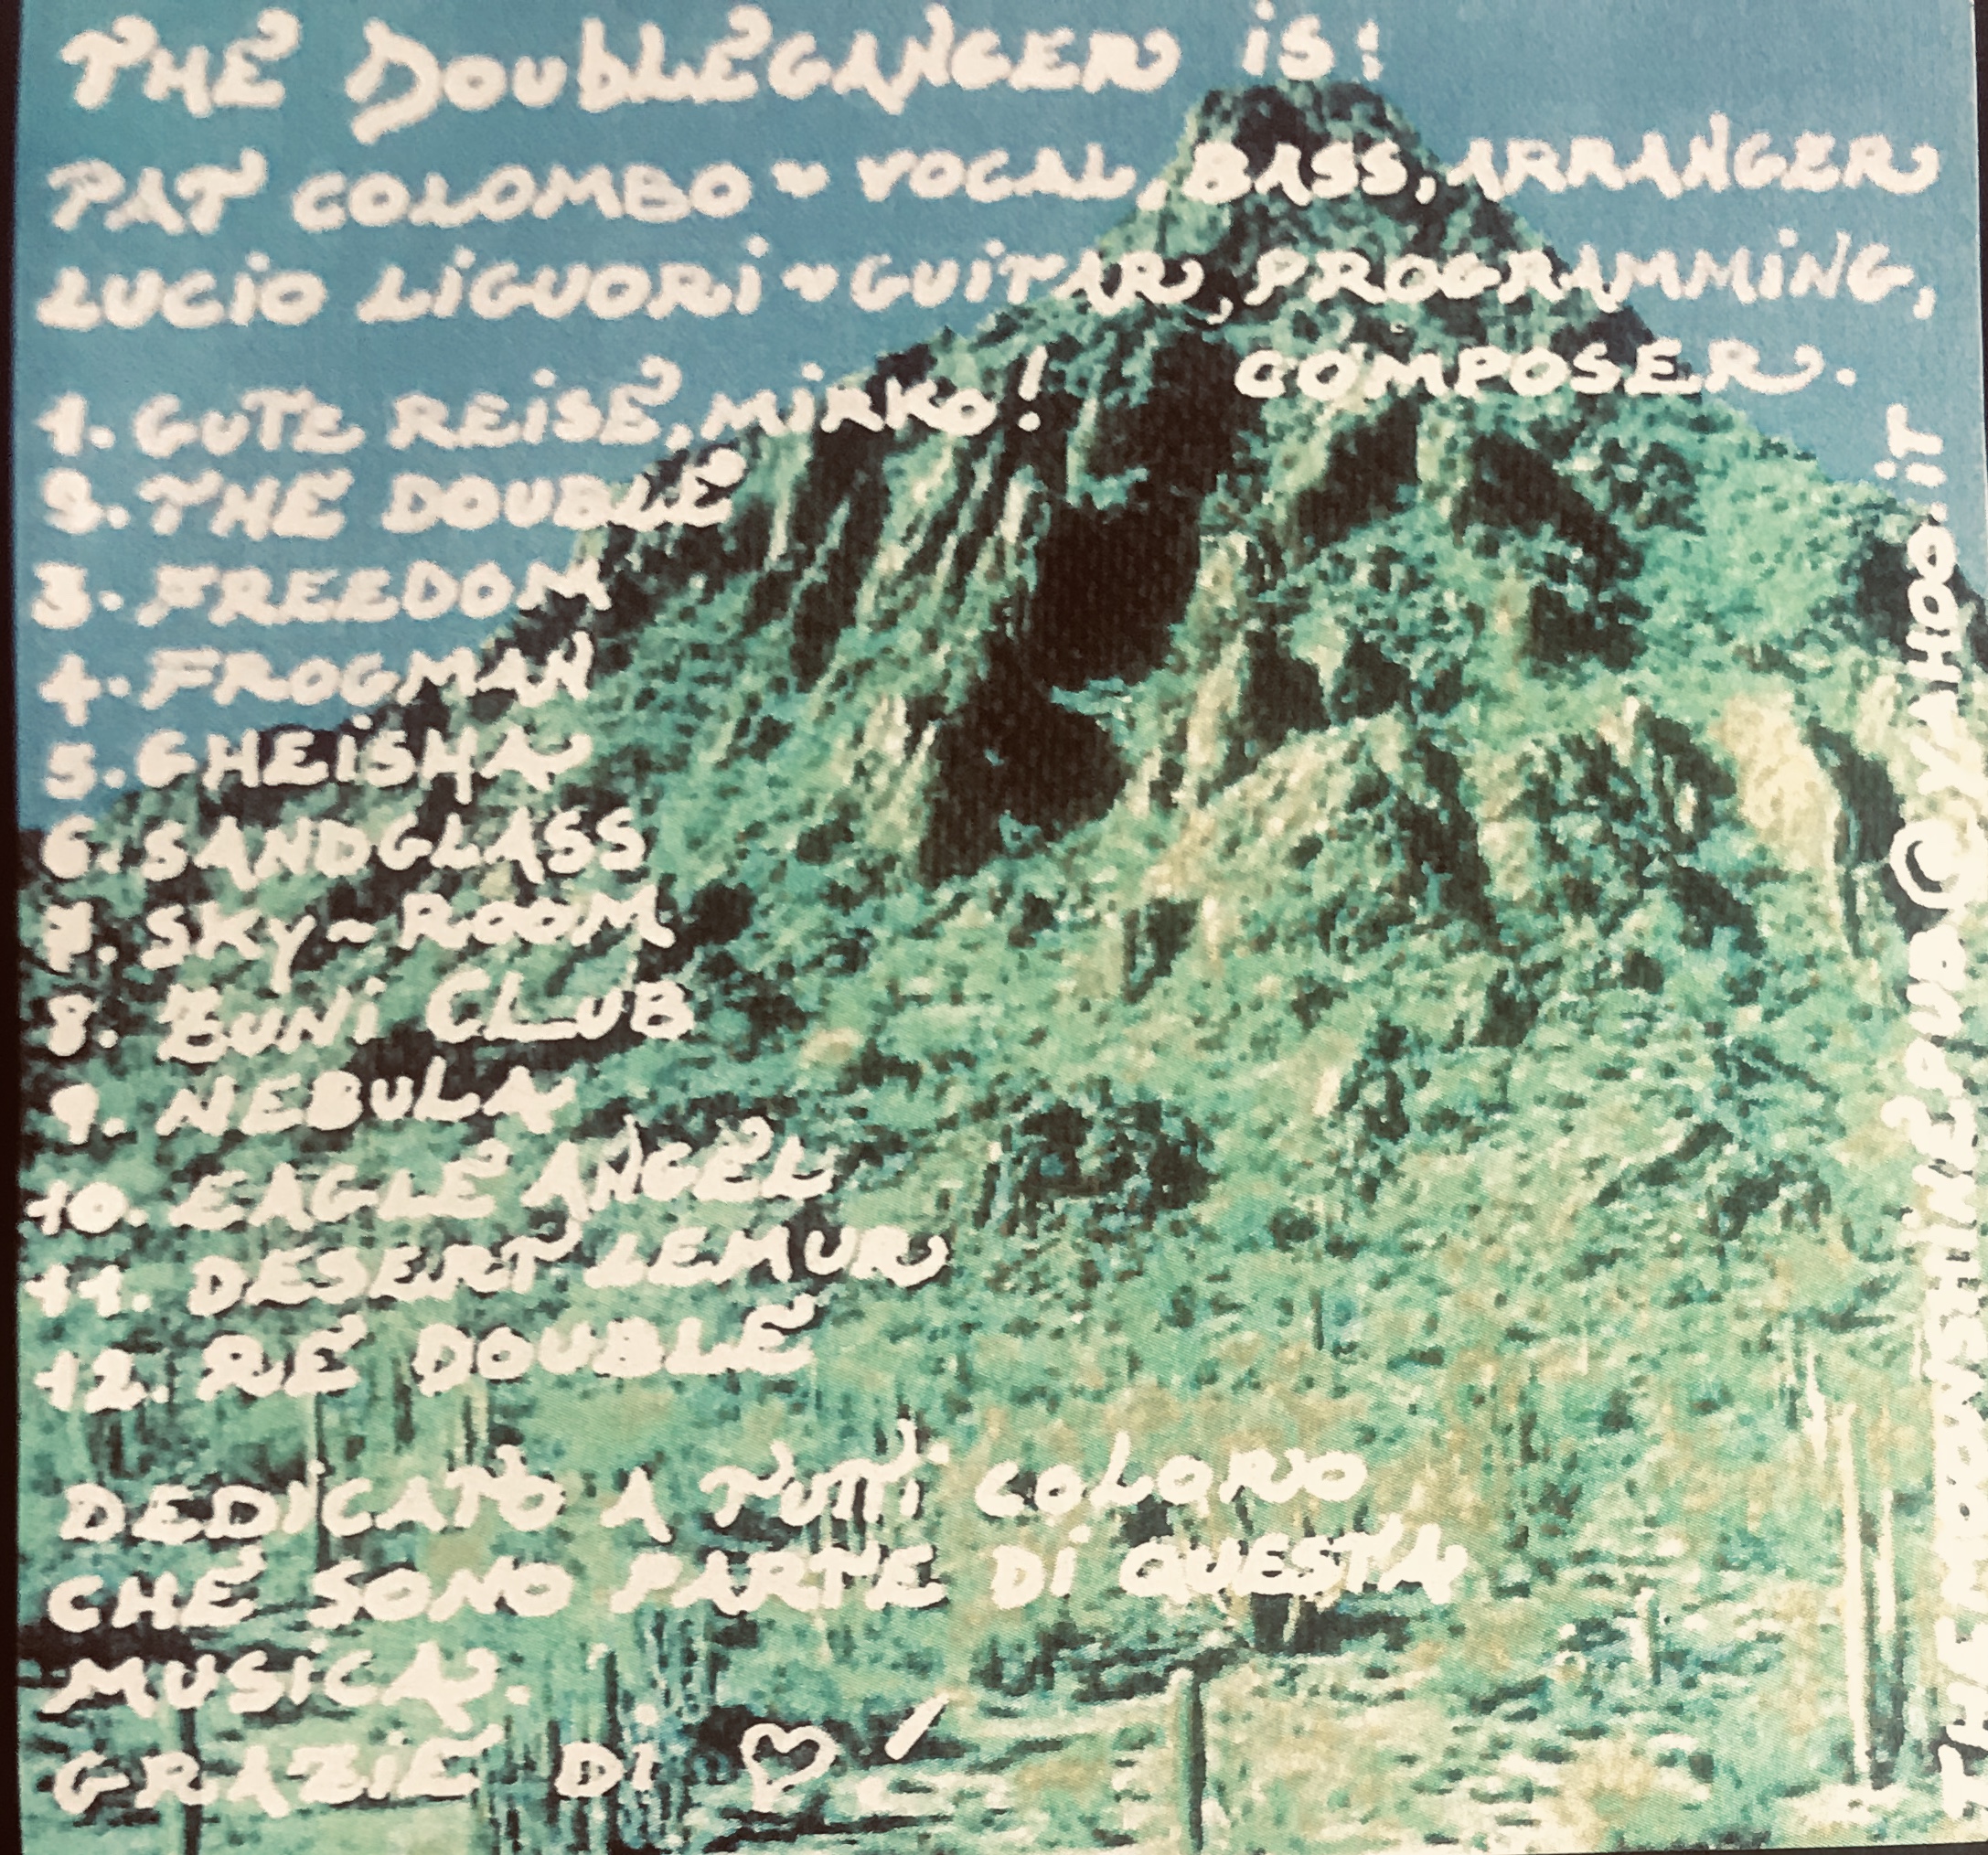 THE DOUBLEGANGER is:
PAT COLOMBO ~ VOCAL, BASS, ARRANGER
LUCiO LiGUORi ~ GUiTAR, PROGRAMMiNG,
COMPOSER.
1. GUTE REiSE, MiRKO!
2. THE DOUBLE
3. FREEDOM
4. FROGMAN
5. GHEiSHA
6. SANDGLASS
7. SKY~ROOM
8. ZUNi CLUB
9. NEBULA
10. EAGLE ANGEL
11. DESERT LEMUR
12. RE DOUBLE
DEDiCATO A TUTTi COLORO
CHE SONO PARTE Di QUESTA
MUSiCA.
GRAZiE Di ♡!
YAHOO.iT